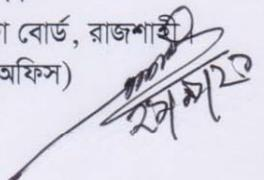 া বোর্ড, রাজশাহী।
অফিস)